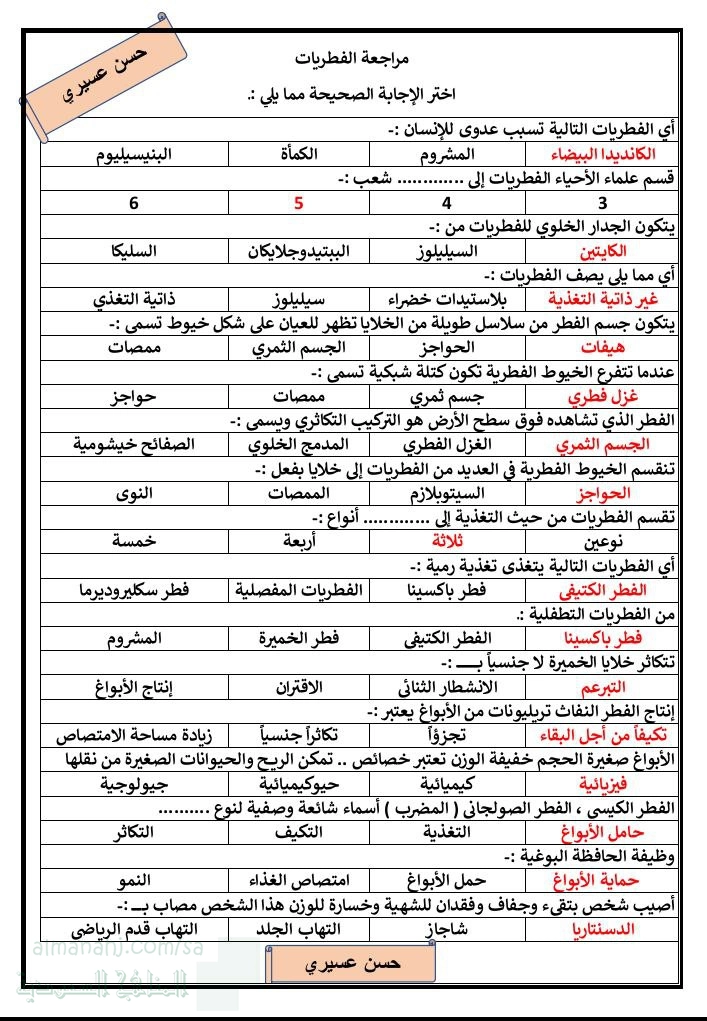 حسن عسيري
مراجعة الفطريات
اختر الإجابة الصحيحة مما يلي :.
أي الفطريات التالية تسبب عدوى للإنسان :-
الكانديدا البيضاء المشروم الكمأة البنيسيليوم
قسم علماء الأحياء الفطريات إلى ............. شعب :-
3 4 5 6
يتكون الجدار الخلوي للفطريات من :-
الكايتين السيليلوز الببتيدوجلايكان السليكا
أي مما يلي يصف الفطريات :-
غير ذاتية التغذية بلاستيدات خضراء سيليلوز ذاتية التغذي
يتكون جسم الفطر من سلاسل طويلة من الخلايا تظهر للعيان على شكل خيوط تسمى :-
هيفات الحواجز الجسم الثمري ممصات
عندما تتفرع الخيوط الفطرية تكون كتلة شبكية تسمى :-
غزل فطري جسم ثمري ممصات حواجز
الفطر الذي تشاهده فوق سطح الأرض هو التركيب التكاثري ويسمى :-
الجسم الثمري الغزل الفطري المدمج الخلوي الصفائح خيشومية
تنقسم الخيوط الفطرية في العديد من الفطريات إلى خلايا بفعل :-
الحواجز السيتوبلازم الممصات النوى
تقسم الفطريات من حيث التغذية إلى ............. أنواع :-
نوعين ثلاثة أربعة خمسة
أي الفطريات التالية يتغذى تغذية رمية :-
الفطر الكتيفي فطر باكسينا الفطريات المفصلية فطر سكليروديرما
من الفطريات التطفلية :.
فطر باكسينا الفطر الكتيفي فطر الخميرة المشروم
تتكاثر خلايا الخميرة لا جنسياً بـــــ :-
التبرعم الانشطار الثنائي الاقتران إنتاج الأبواغ
إنتاج الفطر النفاث تريليونات من الأبواغ يعتبر :-
تكيفاً من أجل البقاء تجزؤاً تكاثراً جنسياً زيادة مساحة الامتصاص
الأبواغ صغيرة الحجم خفيفة الوزن تعتبر خصائص .. تمكن الريح والحيوانات الصغيرة من نقلها
فيزيائية كيميائية حيوكيميائية جيولوجية
الفطر الكيسي ، الفطر الصولجاني ( المضرب ) أسماء شائعة وصفية لنوع ..........
حامل الأبواغ التغذية التكيف التكاثر
وظيفة الحافظة البوغية :-
حماية الأبواغ حمل الأبواغ امتصاص الغذاء النمو
أصيب شخص بتقيء وجفاف وفقدان للشهية وخسارة للوزن هذا الشخص مصاب بـــ :-
الدسنتاريا شاجاز التهاب الجلد التهاب قدم الرياضي
almanahj.com/sa
المناهج السعودية
حسن عسيري